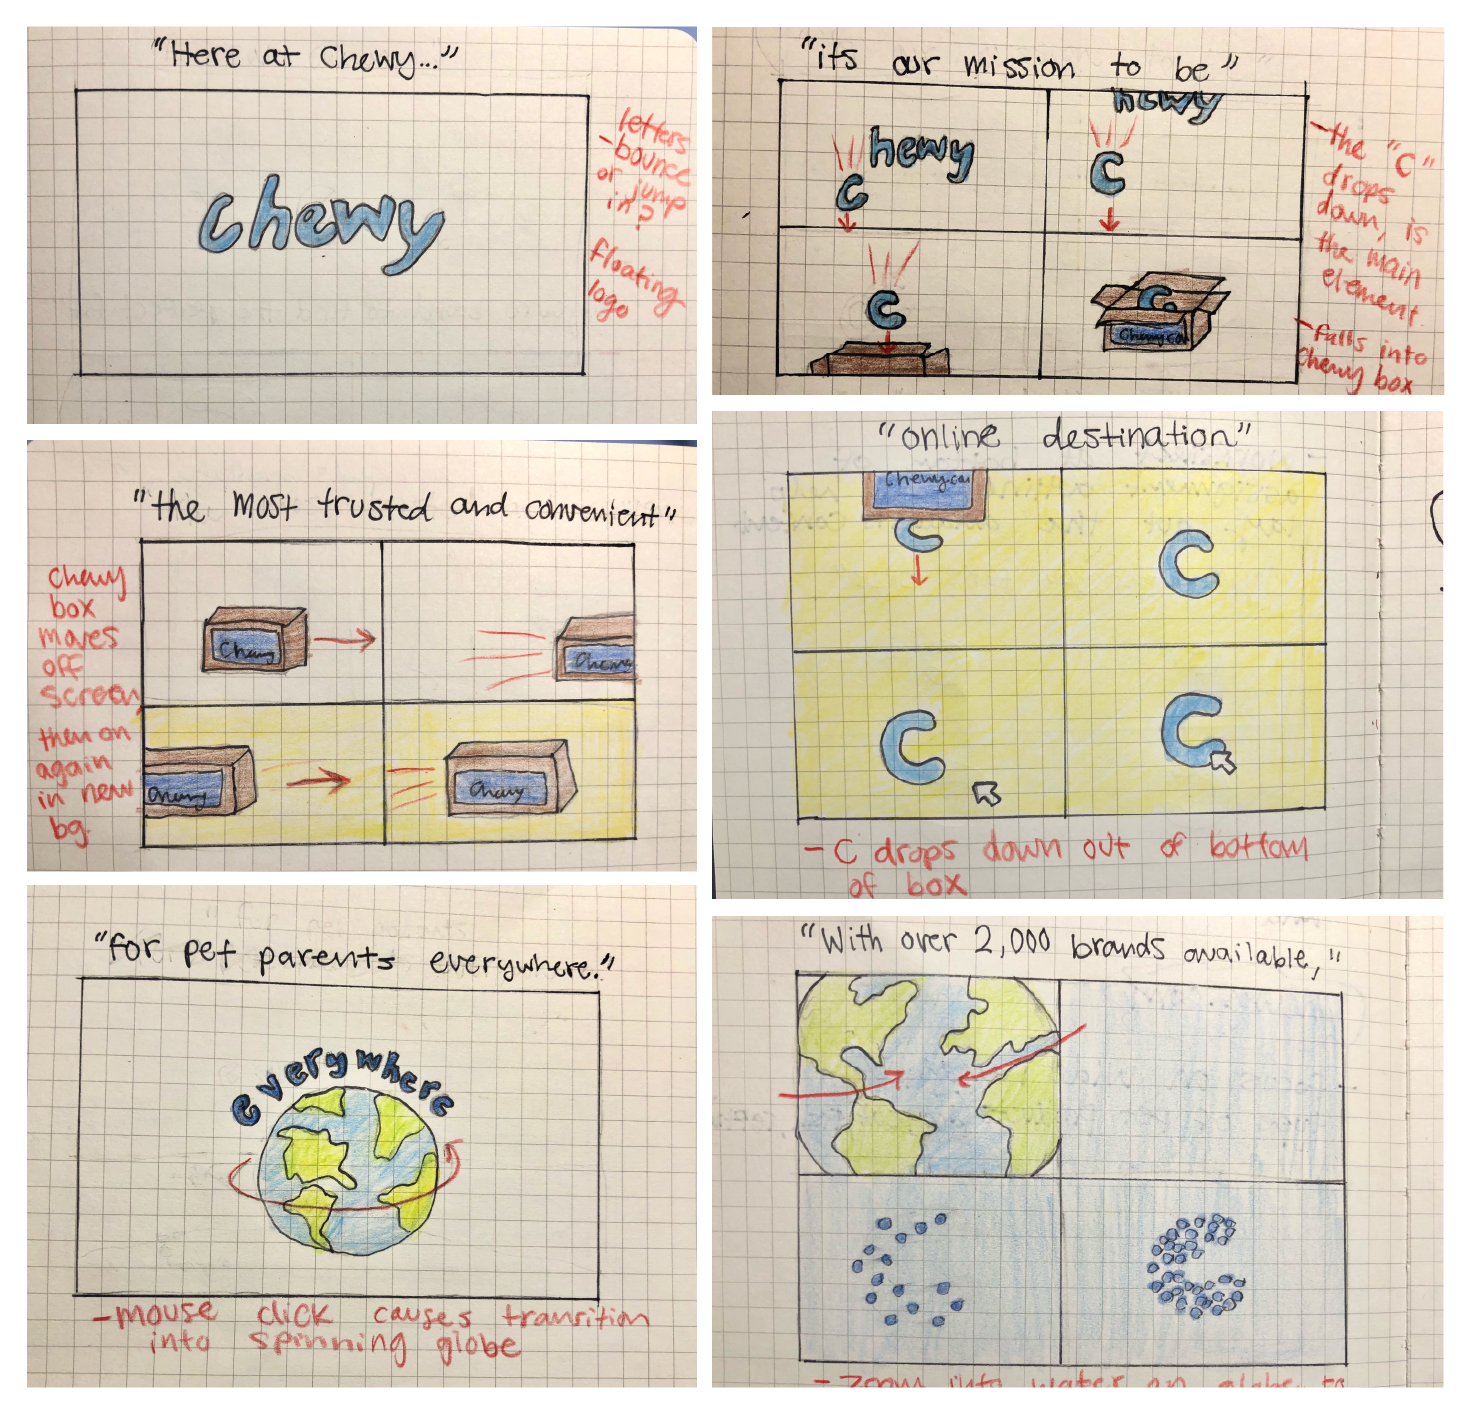 "Here at Chewy..."
chewy
letters
- bounce
or jump
in?
floating
logo
"its our mission to be"
hewy
C
hewy
C
C
C
Chewy.co
- the "C"
drops
down, is
the main
element
- falls into
Chewy box
"the most trusted and convenient"
Chewy
box
moves
off
screen
then on
again
in new
bg.
Chewy
Chewy
Chewy
Chewy
"online destination"
Chewy.com
C
C
C
C
- C drops down out of bottom
of box
"for pet parents everywhere."
everywhere
- mouse click causes transition
into spinning globe
"With over 2,000 brands available,"
C
C
- zoom into water on globe to